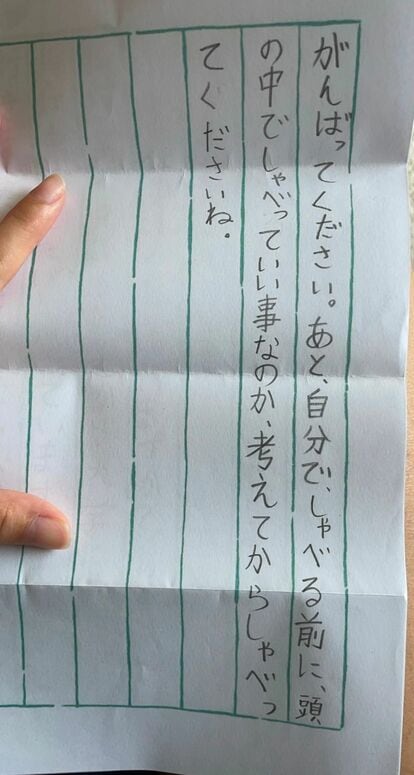 がんばってください。あと、自分で、しゃべる前に、頭
の中でしゃべっていい事なのか、考えてからしゃべっ
てくださいね。